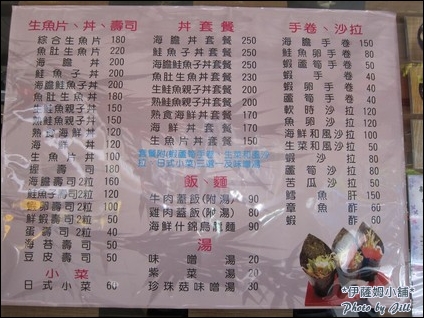 生魚片、丼、壽司
綜合生魚片 180
魚肚生魚片 220
海膽丼 200
鮭魚子丼 200
海膽鮭魚子丼 200
魚肚生魚丼 180
生鮭魚親子丼 120
熟鮭魚親子丼 150
熟食海鮮丼 120
海鮮丼 120
生魚片丼 100
握壽司 100
海膽壽司2粒 160
鮭魚子壽司2粒 120
生魚壽司2粒 50
鮮蝦壽司2粒 50
蛋壽司 50
海苔壽司 50
豆皮壽司 50
小菜
日式小菜 60
丼套餐
海膽丼套餐 250
鮭魚子丼套餐 250
海膽鮭魚子丼套餐 250
魚肚生魚丼套餐 230
生鮭魚親子丼套餐
熟鮭魚親子丼套餐
熟食海鮮丼套餐 170
海鮮丼套餐 170
生魚片丼套餐 150
飯、麵
牛肉蓋飯(附湯) 90
雞肉蓋飯(附湯) 80
海鮮什錦烏龍麵 90
湯
味噌湯 20
紫菜湯 20
珍珠菇味噌湯 30
手卷、沙拉
海膽手卷 150
鮭魚卵手卷 80
蝦蘆筍手卷 40
蝦手卷 40
魚卵手卷 40
蘆筍手卷 40
軟時沙拉 120
鮭魚卵沙拉 100
海鮮和風沙拉 100
生菜和風沙拉 60
蝦沙拉 80
蘆筍沙拉 60
苦瓜沙拉 60
魚肝 150
章魚 60
蝦酢 60
*伊薩姆小舖*
Photo by Jill